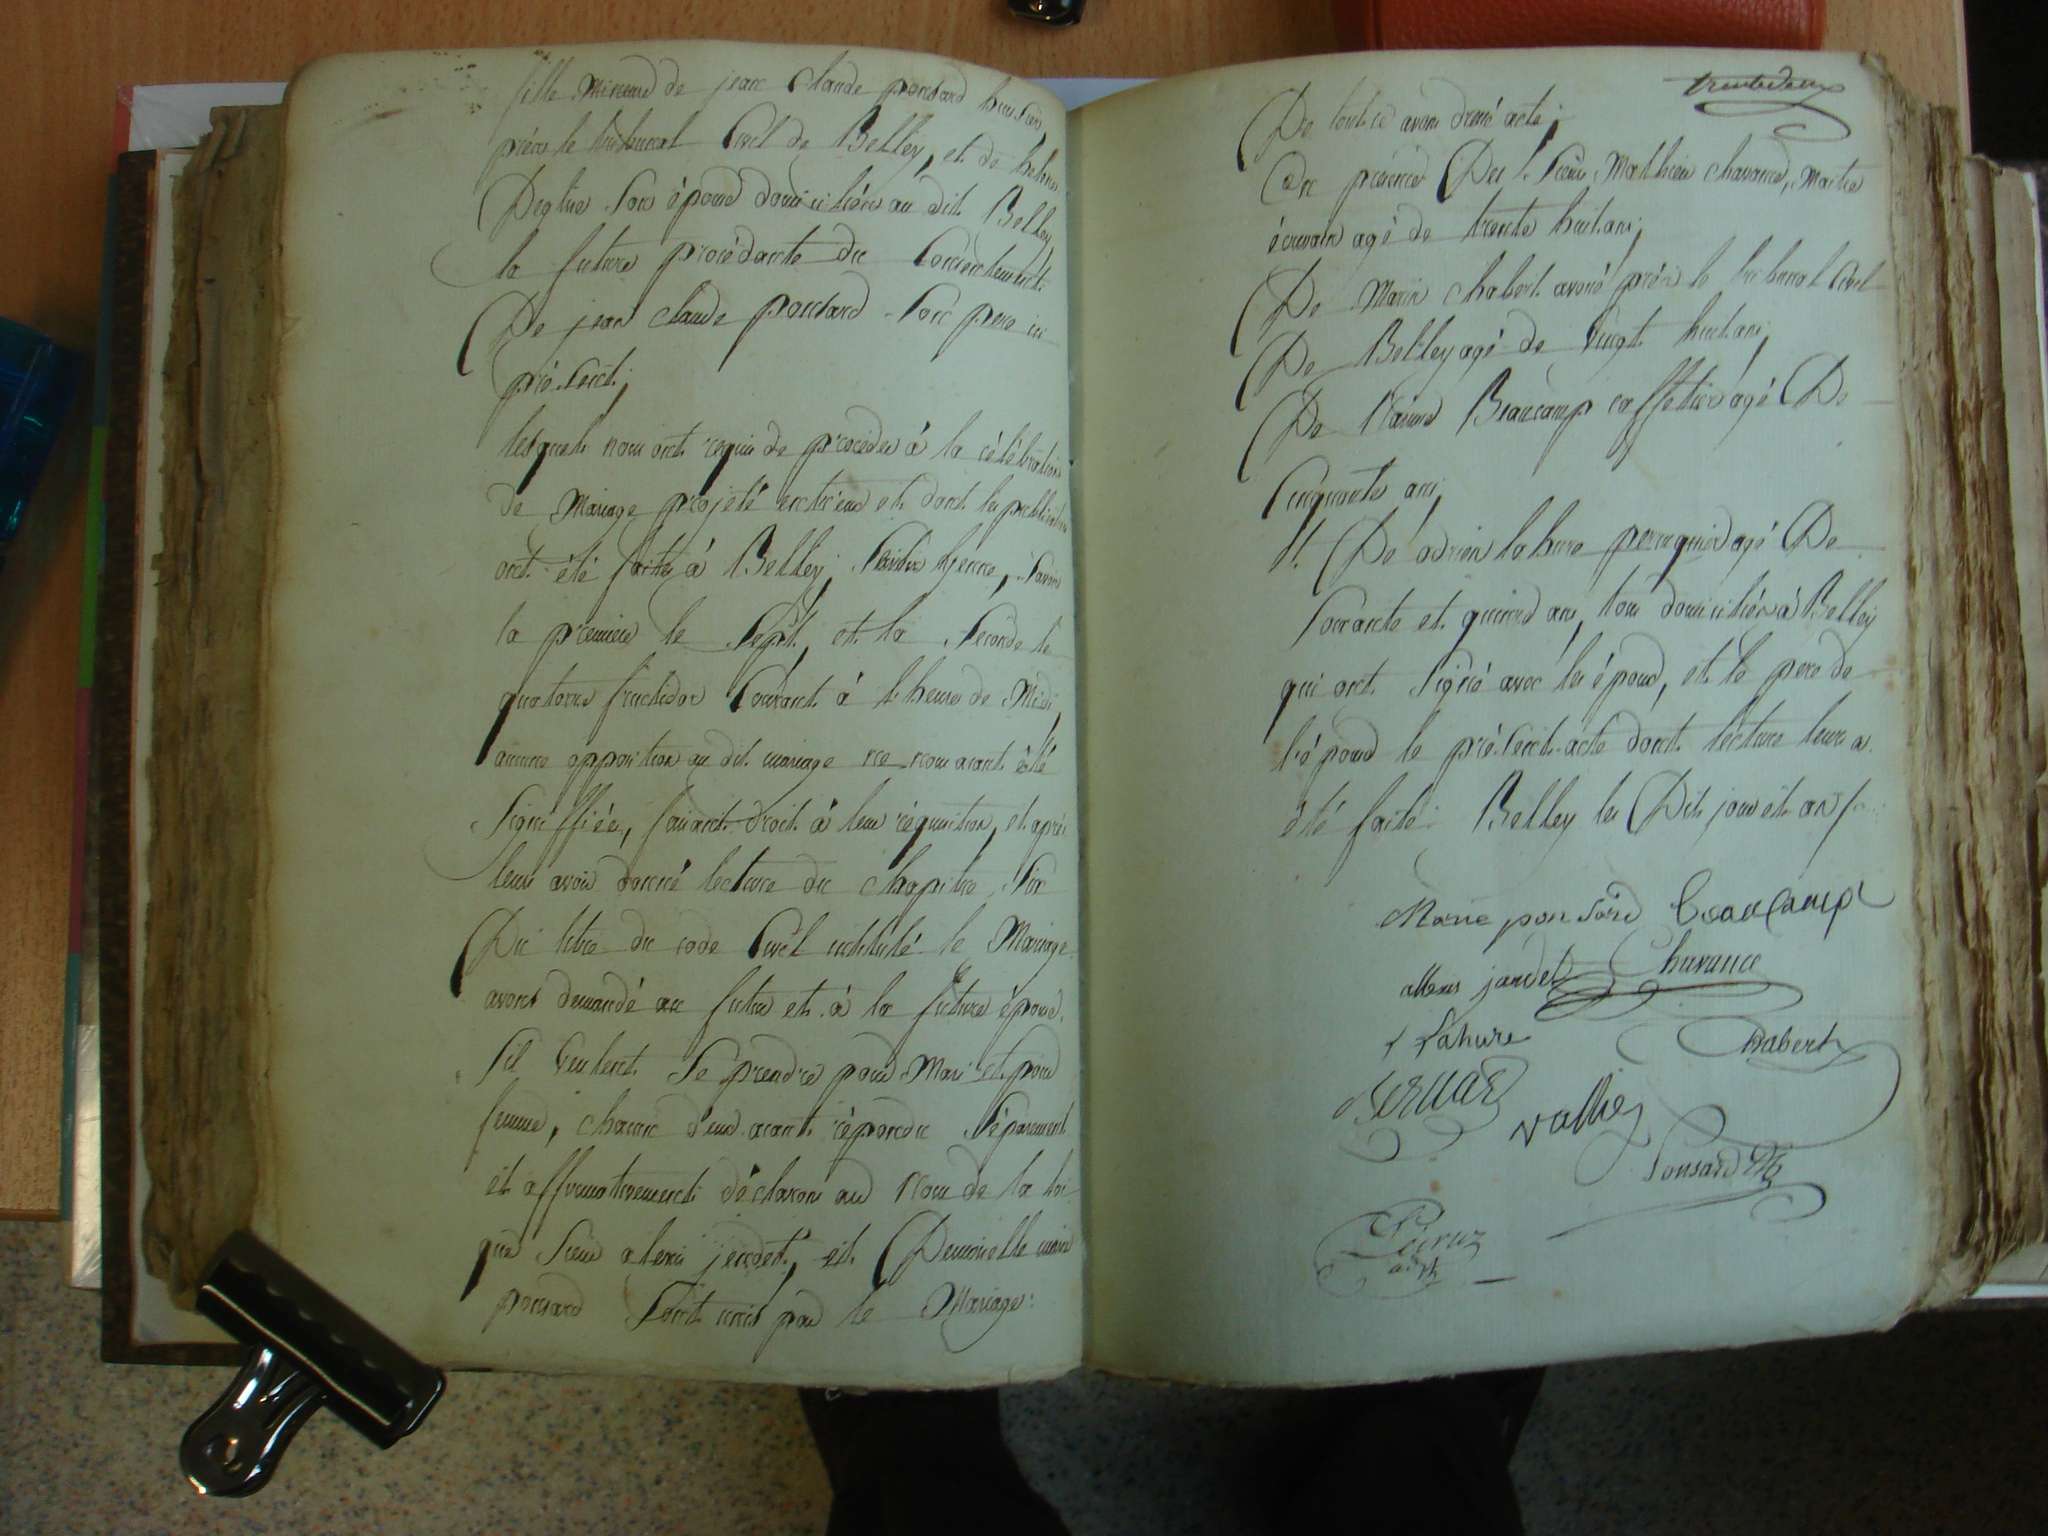 fille Mineure de jean Claude ponsard huissier
près le tribunal Civil de Belley, et de
son épouse domiciliés au dit Belley
la future procédante du Consentement
De jean claude ponsard son pere ici
présent;
lesquels nous ont requis de proceder à la célébration
de Mariage projeté entr'eux et dont les publications
ont été faites à Belley, savoir
la premiere le sept, et la seconde le
quatorze fructidor Courant à l'heure de Midi,
aucune opposition au dit mariage ne nous aiant été
signiffiée, faisant droit à leur réquisition, et après
leur avoir donné lecture du chapitre Six
Du titre du code Civil intitulé le Mariage
avons demandé au futur et à la future épouse
s'il veulent se prendre pour Mari et pour
femme, chacun d'eux aiant répondu séparément
et affirmativement déclarons au Nom de la loi
que sieur alexis jendet, et Demoiselle marie
ponsard sont unis par le Mariage:
trentedeux
De tout ce avons dressé acte;
En présence Des srs Sieurs Mathieu chavance, Maitre
écrivain agé de trente huit ans,
De Marin chabert avoué près le tribunal Civil
De Belley agé de vingt huit ans,
De Beaucamp caffetier agé De
Cinquante ans,
et De adrien lahure perruquier agé De
soixante et quinze ans, tous domiciliés à Belley
qui ont signé avec les époux, et le pere de
l'épouse le présent acte dont lecture leur a
été faite. Belley les Dit jour et an
Marie ponsard Beaucamp
allexis jandet Chavance
Lahure Chabert
vallier
Ponsard